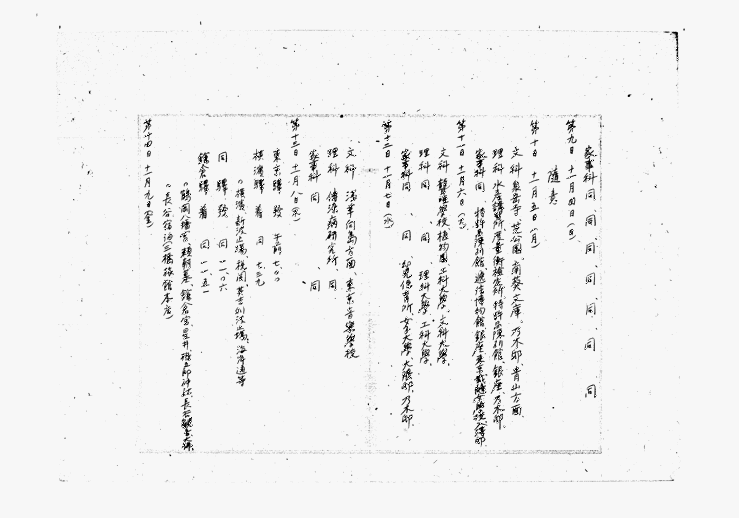 家事科 同 同 同 同 同 同 同
第九日 十一月四日(日)
随意
第十日 十一月五日(月)
文科 泉岳寺、芝公園、南葵文庫。乃木邸、青山方面
理科 水産講習所、度量衡検定所、特許品陳列館、銀座、乃木邸。
家事科 同 特許品陳列館、逓信博物館、銀座、東京裁縫女学校、
第十一日 十一月六日(火)
文科 植物園、工科大學、文科大學、
理科 同 同 理科大學、工科大學、
家事科 同 同 女子大學、乃木邸、
第十二日 十一月七日(水)
文科 浅草向島方面、東京音樂學校
理科 傳染病研究所、同
家事科 同 同
第十三日 十一月八日(木)
東京驛 發 午前 七、〇〇
横濱驛 着 同 七、三九
(横濱新波止場、税関、英吉利波止場、海岸通等
同 驛 發 同 一一、〇六
鎌倉驛 着 同 一一、五一
(鶴岡八幡宮、頼朝墓、鎌倉宮、星井、権五郎神社、長谷観音、大佛、
(長谷宿泊 三橋旅館本店)
第十四日 十一月九日(金)